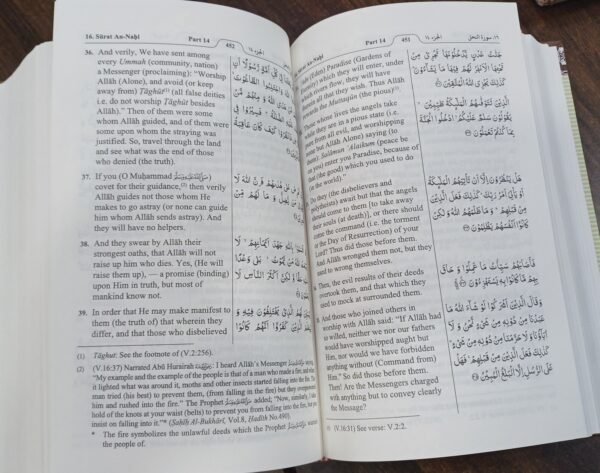 16. Sûrat An-Nahl
Part 14
452
الجزء ١٤
36. And verily, We have sent among
every Ummah (community, nation)
a Messenger (proclaiming): "Worship
Allâh (Alone), and avoid (or keep
away from) Tâghût(1) (all false deities
i.e. do not worship Tâghût besides
Allâh)." Then of them were some
whom Allâh guided, and of them were
some upon whom the straying was
justified. So, travel through the land
and see what was the end of those
who denied (the truth).
37. If you (O Muhammad ﷺ)
covet for their guidance,(2) then verily
Allâh guides not those whom He
makes to go astray (or none can guide
him whom Allâh sends astray). And
they will have no helpers.
38. And they swear by Allâh their
strongest oaths, that Allâh will not
raise up him who dies. Yes, (He will
raise them up), — a promise (binding)
upon Him in truth, but most of
mankind know not.
39. In order that He may make manifest to
them (the truth of) that wherein they
differ, and that those who disbelieved
(1) Tâghut: See the footnote of (V.2:256).
(2) (V.16:37) Narrated Abû Hurairah: I heard Allâh's Messenger ﷺ saying,
"My example and the example of the people is that of a man who made a fire, and when
it lighted what was around it, moths and other insects started falling into the fire. The
man tried (his best) to prevent them, (from falling in the fire) but they overpowered
him and rushed into the fire." The Prophet ﷺ added: "Now, similarly, I take
hold of the knots at your waist (belts) to prevent you from falling into the fire, but you
insist on falling into it."* (Sahih Al-Bukhâri, Vol.8, Hadith No.490).
* The fire symbolizes the unlawful deeds which the Prophet ﷺ warned
the people of.
Sûrat An-Nahl
Part 14
451
الجزء ١٤
١٦. سورة النحل
(Eden) Paradise (Gardens of
which they will enter, under
rivers flow, they will have
all that they wish. Thus Allâh
the Muttaqûn (the pious)
Those whose lives the angels take
while they are in a pious state (i.e.
from all evil, and worshipping
but Allâh Alone) saying (to
them): Salâmun 'Alaikum (peace be
you) enter you Paradise, because of
that (the good) which you used to do
(in the world)."
Do they (the disbelievers and
polytheists) await but that the angels
should come to them [to take away
their souls (at death)], or there should
come the command (i.e. the torment
or the Day of Resurrection) of your
Lord? Thus did those before them.
And Allâh wronged them not, but they
used to wrong themselves.
Then, the evil results of their deeds
overtook them, and that which they
used to mock at surrounded them.
And those who joined others in
worship with Allâh said: "If Allâh had
so willed, neither we nor our fathers
would have worshipped aught but
Him, nor would we have forbidden
anything without (Command from)
Him." So did those before them.
Then! Are the Messengers charged
with anything but to convey clearly
the Message?
(V.16:31) See verse: V.2:2.
جَنَّٰتُ عَدْنٍ يَدْخُلُونَهَا تَجْرِى مِن
تَحْتِهَا ٱلْأَنْهَٰرُ لَهُمْ فِيهَا مَا يَشَآءُونَ
كَذَٰلِكَ يَجْزِى ٱللَّهُ ٱلْمُتَّقِينَ
ٱلَّذِينَ تَتَوَفَّىٰهُمُ ٱلْمَلَٰٓئِكَةُ طَيِّبِينَ
يَقُولُونَ سَلَٰمٌ عَلَيْكُمُ ٱدْخُلُوا۟ ٱلْجَنَّةَ
بِمَا كُنتُمْ تَعْمَلُونَ
هَلْ يَنظُرُونَ إِلَّآ أَن تَأْتِيَهُمُ ٱلْمَلَٰٓئِكَةُ
أَوْ يَأْتِىَ أَمْرُ رَبِّكَ كَذَٰلِكَ فَعَلَ ٱلَّذِينَ
مِن قَبْلِهِمْ وَمَا ظَلَمَهُمُ ٱللَّهُ وَلَٰكِن
كَانُوٓا۟ أَنفُسَهُمْ يَظْلِمُونَ
فَأَصَابَهُمْ سَيِّـَٔاتُ مَا عَمِلُوا۟ وَحَاقَ
بِهِم مَّا كَانُوا۟ بِهِۦ يَسْتَهْزِءُونَ
وَقَالَ ٱلَّذِينَ أَشْرَكُوا۟ لَوْ شَآءَ ٱللَّهُ مَا
عَبَدْنَا مِن دُونِهِۦ مِن شَىْءٍ نَّحْنُ وَلَآ
ءَابَآؤُنَا وَلَا حَرَّمْنَا مِن دُونِهِۦ مِن شَىْءٍ
كَذَٰلِكَ فَعَلَ ٱلَّذِينَ مِن قَبْلِهِمْ فَهَلْ
عَلَى ٱلرُّسُلِ إِلَّا ٱلْبَلَٰغُ ٱلْمُبِينُ